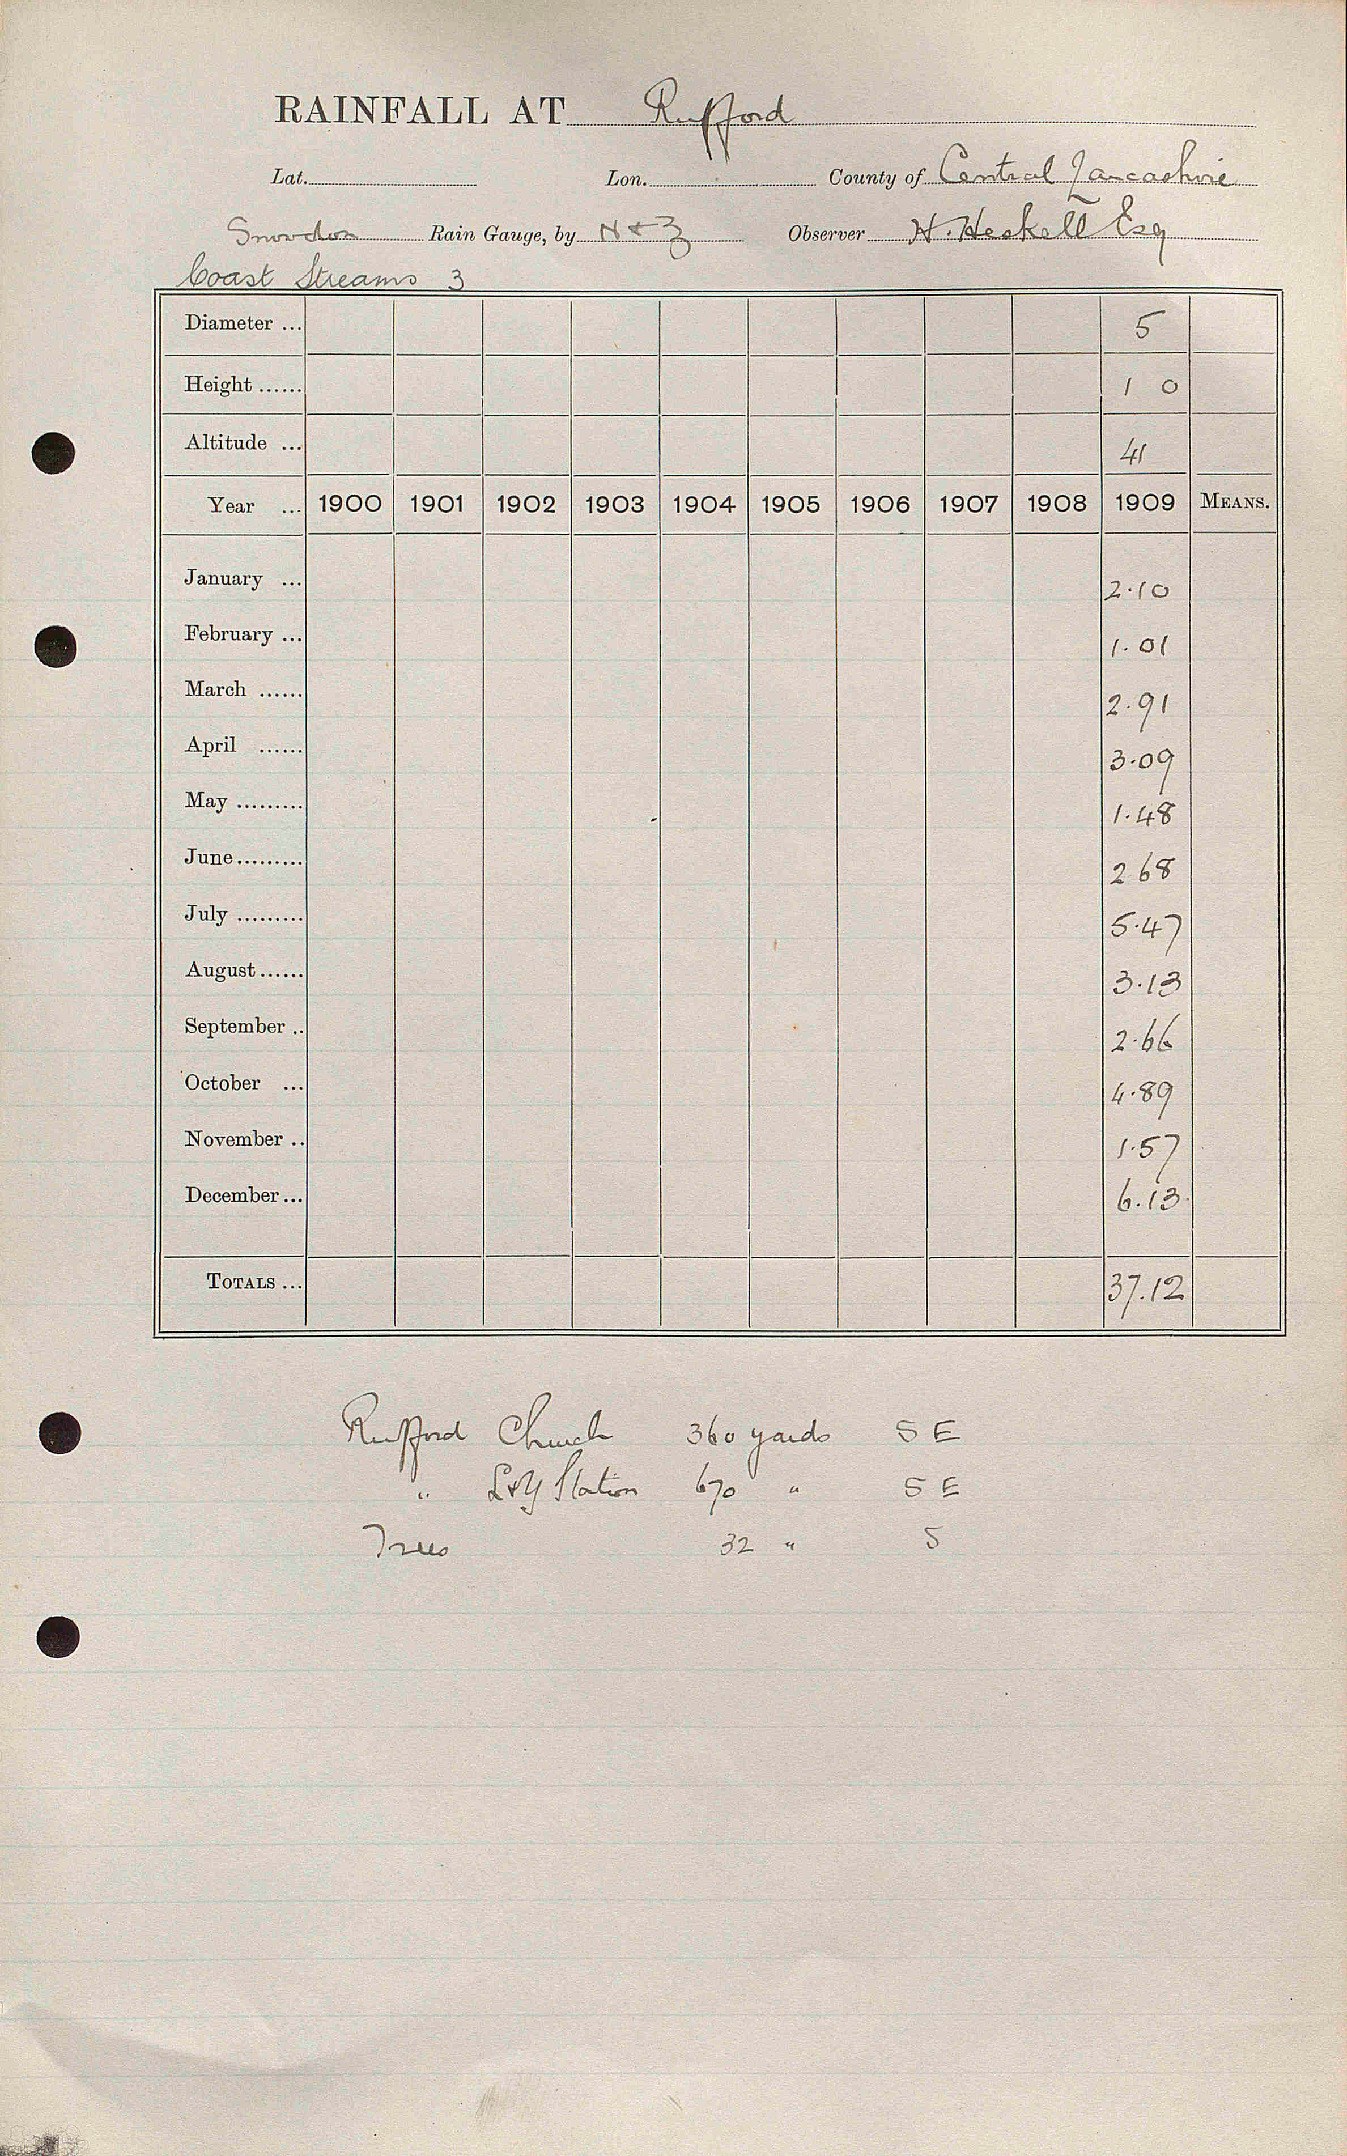 RAINFALL AT Rufford
Lat. Lon. County of Central Lancashire
Snowdon Rain Gauge, by N & Z Observer H. Heskell Esq
Coast Streams 3
Diameter ... 5
Height ...... 1 0
Altitude ... 41
Year ... 1900 1901 1902 1903 1904 1905 1906 1907 1908 1909 MEANS.
January ... 2.10
February ... 1.01
March ...... 2.91
April ...... 3.09
May ......... 1.48
June ......... 2 68
July ......... 5.47
August ...... 3.13
September .. 2.66
October ... 4.89
November .. 1.57
December ... 6.13
TOTALS ... 37.12
Rufford Church 360 yards S E
" L&Y Station 670 " S E
Trees 32 " S